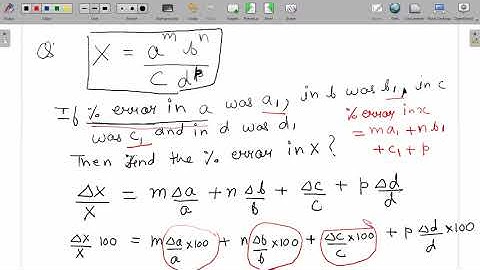 Q
X = a^m b^n / c d^p
If % error in a was a₁, in b was b₁, in c
was c₁ and in d was d₁
% error in x
= ma₁ + nb₁
+ c₁ + p
Then find the % error in X?
Δx/X = m Δa/a + n Δb/b + Δc/c + p Δd/d
Δx/X 100 = m Δa/a ×100 + n Δb/b ×100 + Δc/c ×100 + p Δd/d ×100